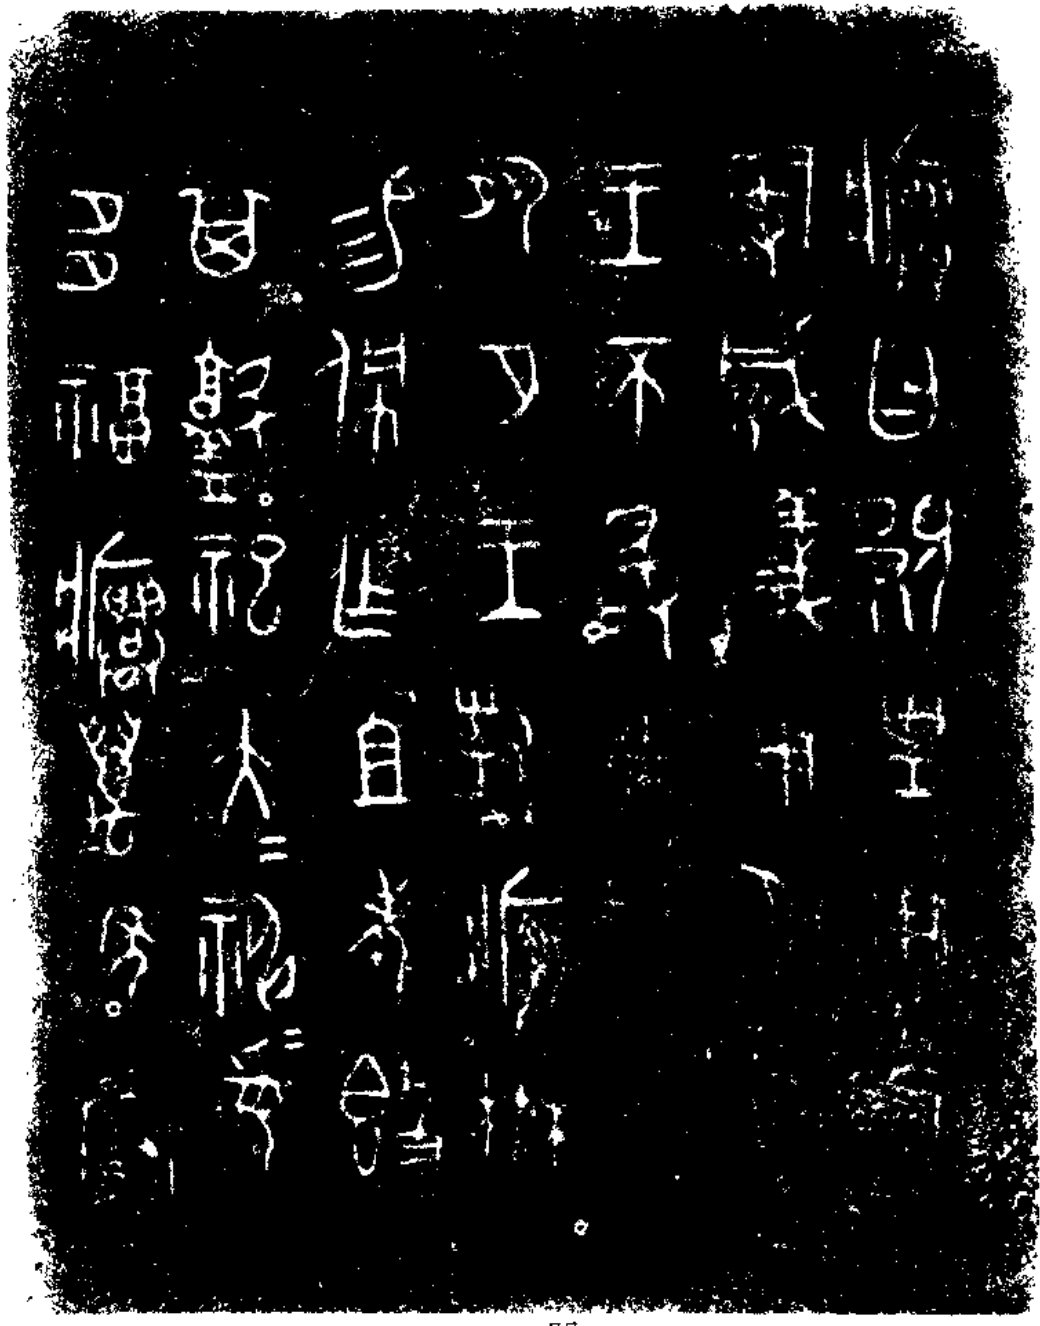 𤼈曰覭皇且考
𤔲威義用辟先
王不敢弗帥用
夙夕王對𤼈楙
易佩乍且考𣪘
其𦎫祀大=神=妥
多福𤼈萬年寶